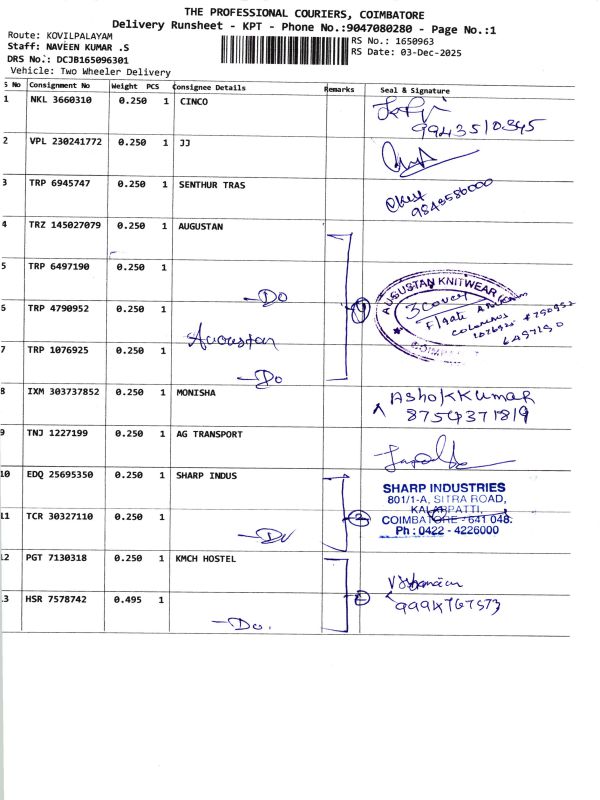 THE PROFESSIONAL COURIERS, COIMBATORE
Delivery Runsheet - KPT - Phone No.:9047080280 - Page No.:1
Route: KOVILPALAYAM
RS No.: 1650963
Staff: NAVEEN KUMAR .S
RS Date: 03-Dec-2025
DRS No.: DCJB165096301
Vehicle: Two Wheeler Delivery
S No Consignment No Weight PCS Consignee Details Remarks Seal & Signature
1 NKL 3660310 0.250 1 CINCO
9943510345
2 VPL 230241772 0.250 1 JJ
3 TRP 6945747 0.250 1 SENTHUR TRAS
9843556000
4 TRZ 145027079 0.250 1 AUGUSTAN
5 TRP 6497190 0.250 1
-Do
AUGUSTAN KNITWEAR
3 Cover
6 TRP 4790952 0.250 1
Augustan
4790952
1076925
6497190
7 TRP 1076925 0.250 1
-Do
8 IXM 303737852 0.250 1 MONISHA
AshokKumar
8754371819
9 TNJ 1227199 0.250 1 AG TRANSPORT
10 EDQ 25695350 0.250 1 SHARP INDUS
SHARP INDUSTRIES
801/1-A, SITRA ROAD,
KALAPATTI,
11 TCR 30327110 0.250 1
2
COIMBATORE - 641 048.
Ph : 0422 - 4226000
-Do
12 PGT 7130318 0.250 1 KMCH HOSTEL
13 HSR 7578742 0.495 1
9994767573
-Do.